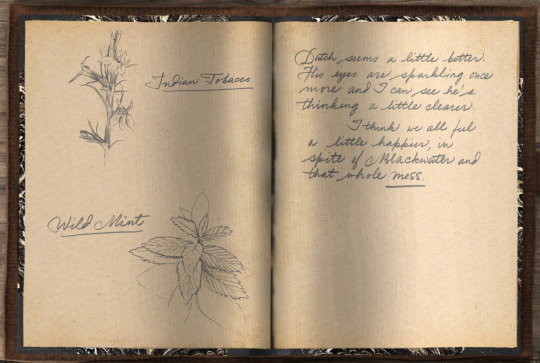 Indian Tobacco
Wild Mint
Dutch seems a little better.
His eyes are sparkling once
more and I can see he's
thinking a little clearer.
I think we all feel
a little happier, in
spite of Blackwater and
that whole mess.